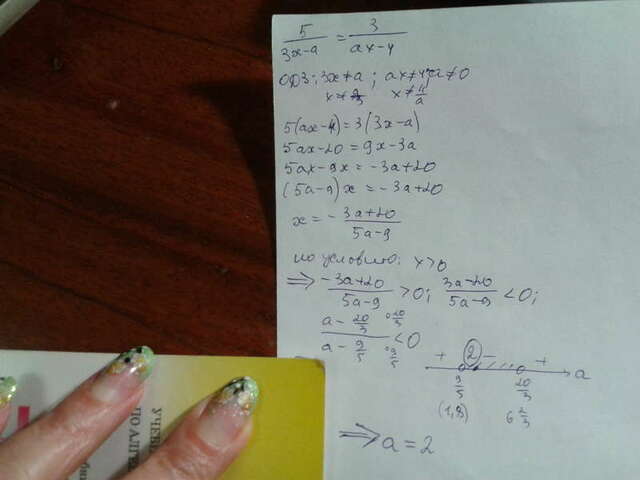 5/(3x-a) = 3/(ax-4)
ОДЗ: 3x≠a; ax≠4; a≠0
x≠a/3 x≠4/a
5(ax-4)=3(3x-a)
5ax-20=9x-3a
5ax-9x=-3a+20
(5a-9)x=-3a+20
x=-3a+20/5a-9
по условию: x>0
⇒ -3a+20/5a-9 >0; 3a-20/5a-9 <0;
a-20/3 / a-9/5 <0 •20/3 •9/5
+ 2 - + a
9/5 20/3
(1,8) 6 2/3
⇒ a=2
УЧЕБН
ПО АЛГЕБ